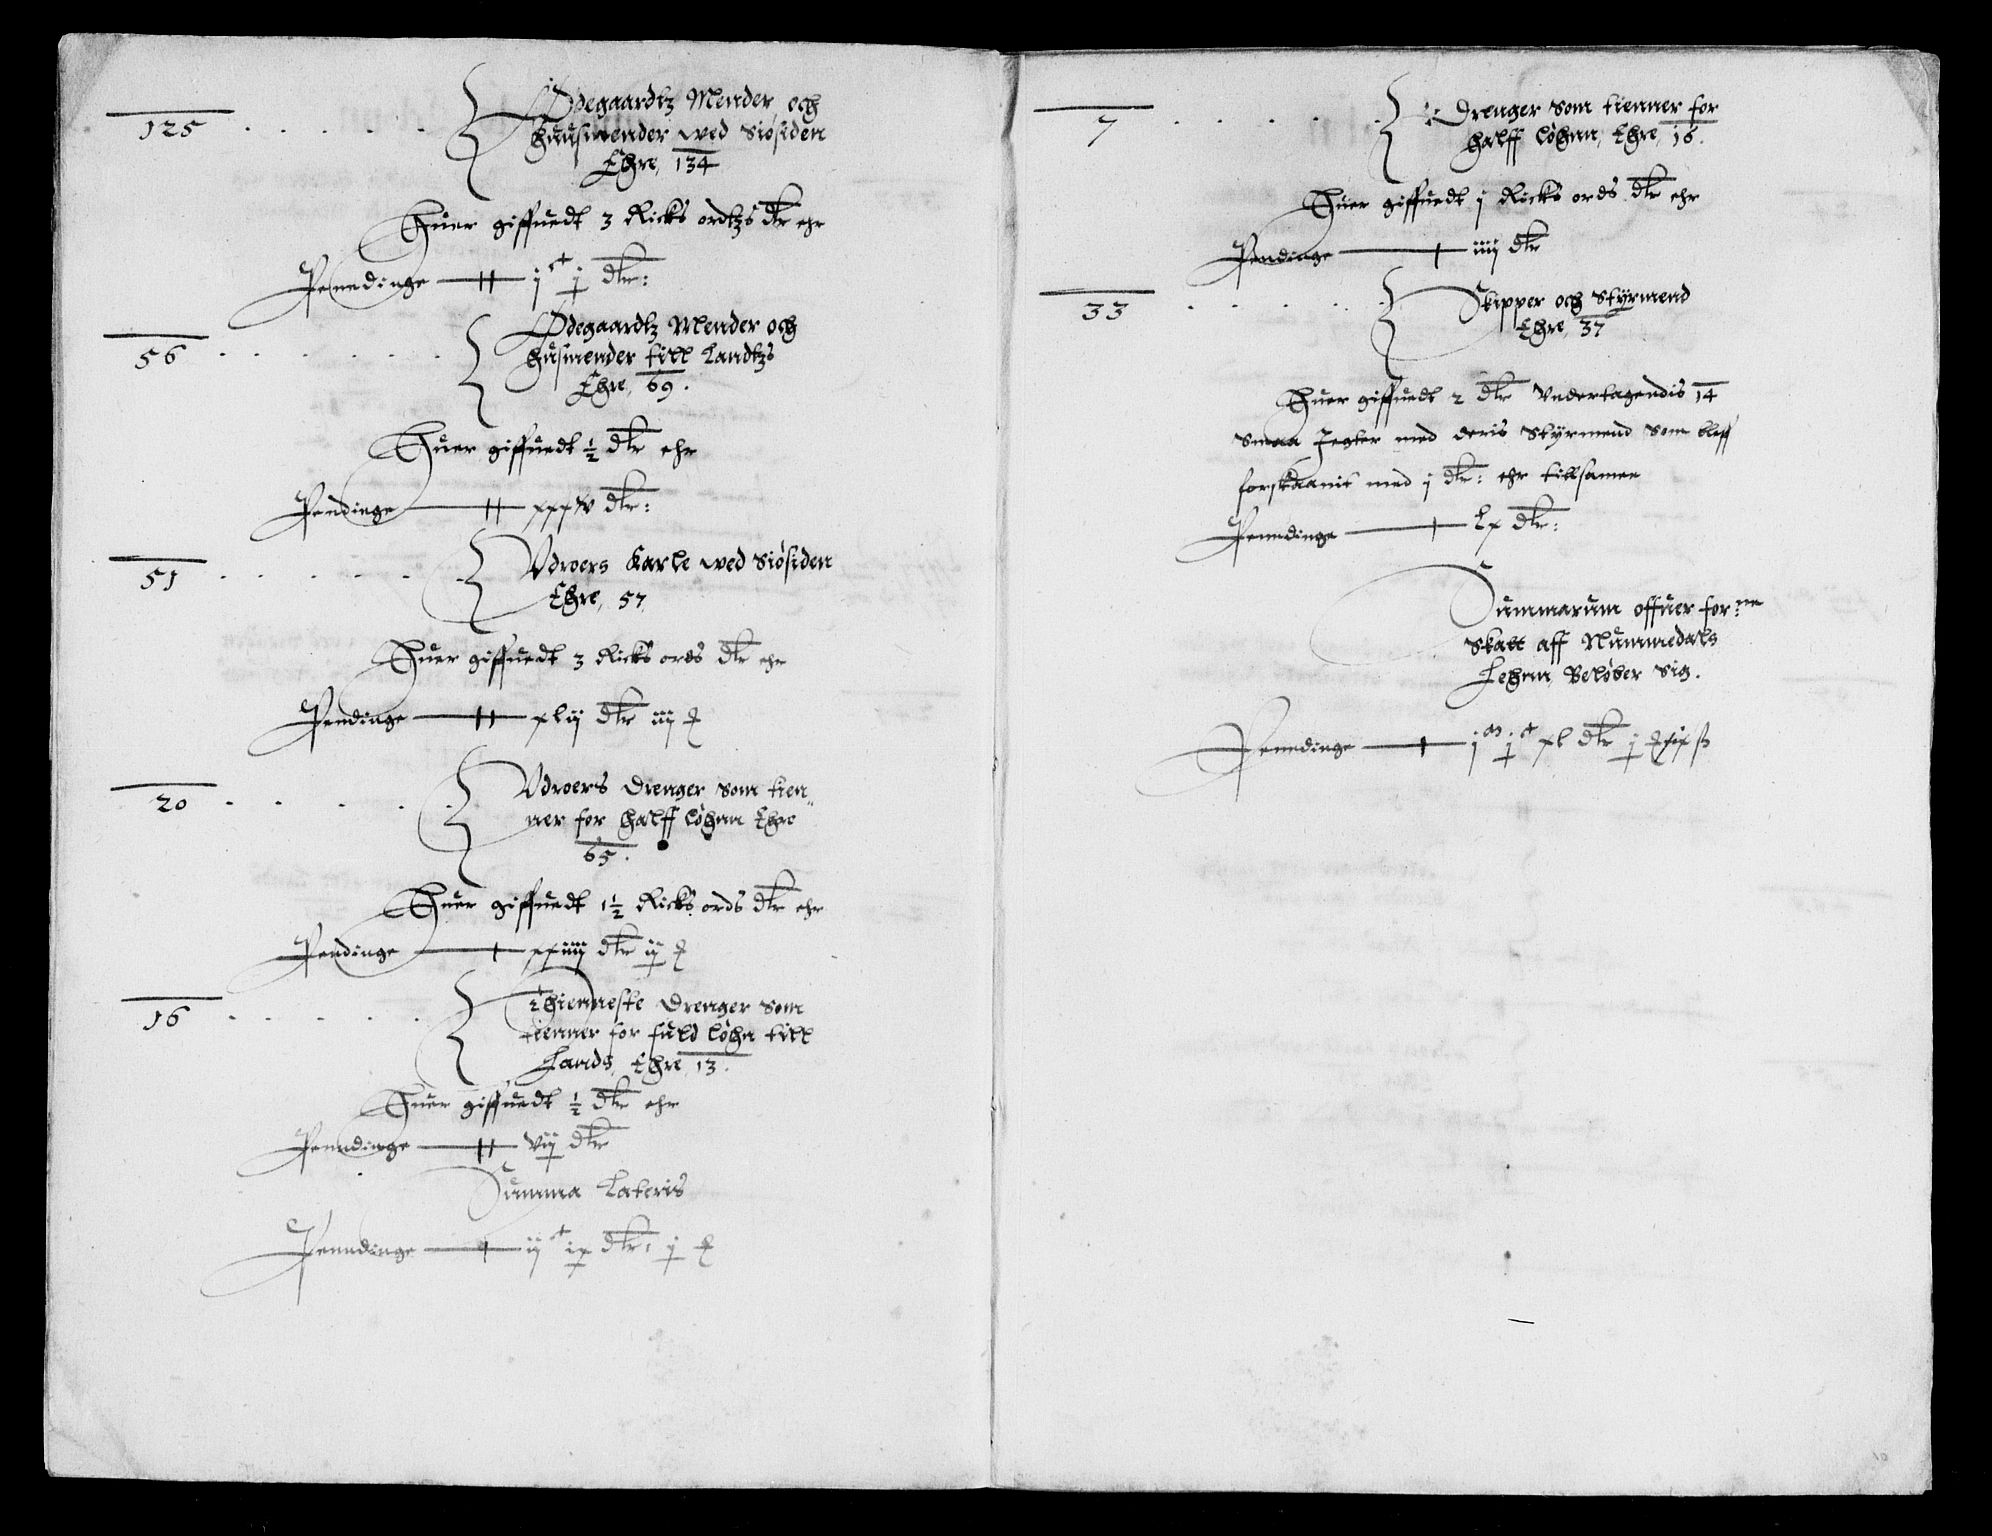 125 . . . . . Ødegaardtz Mender och
huusmender wed Siøsiden
Ehre, 134
Huer giffuedt 3 Ricks ordtzs dlr ehr
Penndinge j c j dlr:
56 . . . . . . Ødegaardtz Mender och
husmender till Landtzs
Ehre, 69.
Huer giffuedt ½ dlr ehr
Pendinge xxxiv dlr:
51 . . . . . . Vdroers Karle wed Siøsiden
Ehre, 57
Huer giffuedt 3 Ricks ords dlr ehr
Pendinge xlij dlr iij
20 . . . . . Vdroers Drenger som tien„
ner for halff løhnn Ehre
65.
Huer giffuedt 1½ Ricks ords dlr ehr
Pendinge xxiiij dlr ij
16 . . . . . Thienneste Drenger som
tienner for fuld løhn till
Lands, Ehre, 13.
Huer giffuedt ½ dlr ehr
Penndinge vij dlr
Summa Lateris
Penndinge ij c ix dlr: j
7 . . . . . Drenger som tienner for
halff løhnn, Ehre, 16.
Huer giffuedt j Ricks ords dlr ehr
Pendinge iiij dlr
33 . . . . . Skipper och Styrmend
Ehre, 37
Huer giffuedt 2 dlr Vndertagendis 14
Smaa Jegter med deris Styrmend som bleff
forskaanit med j dlr: ehr tillsamen
Penndinge lx dlr:
Summarum offuer for:ne
Skatt aff Nummedals
Lehnn Beløber Sig.
Penndinge j m j c xl dlr j xix ß